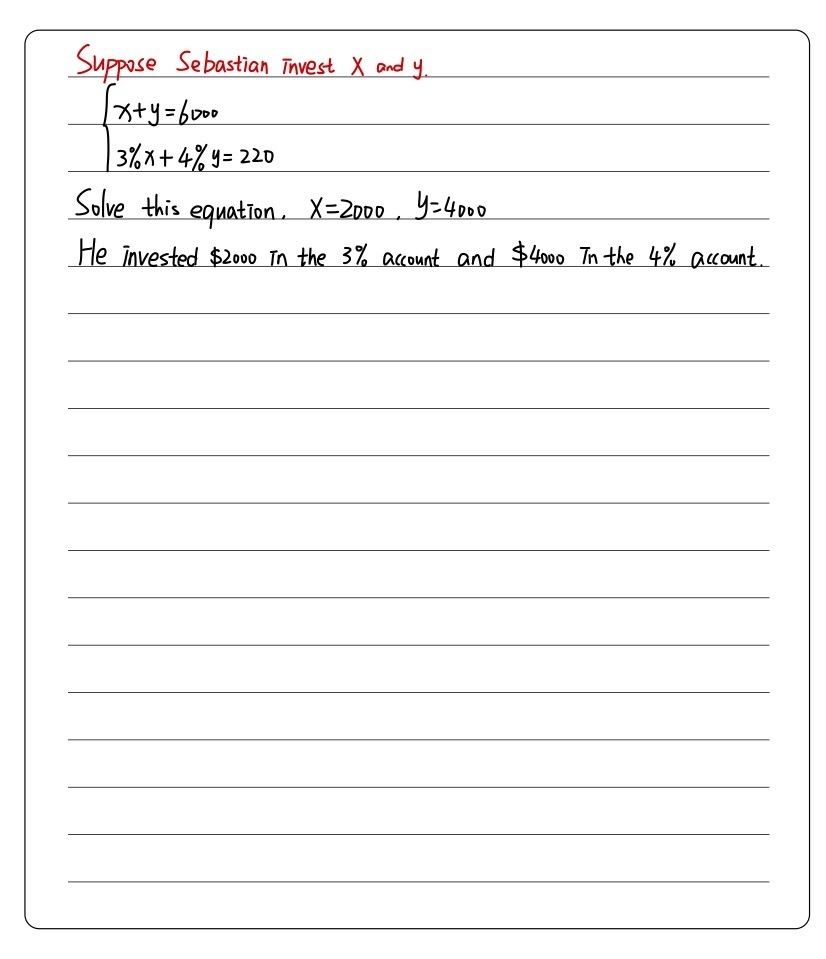 Suppose Sebastian invest X and y.
x+y=6000
3%x+4%y=220
Solve this equation. X=2000, y=4000
He invested $2000 in the 3% account and $4000 in the 4% account.